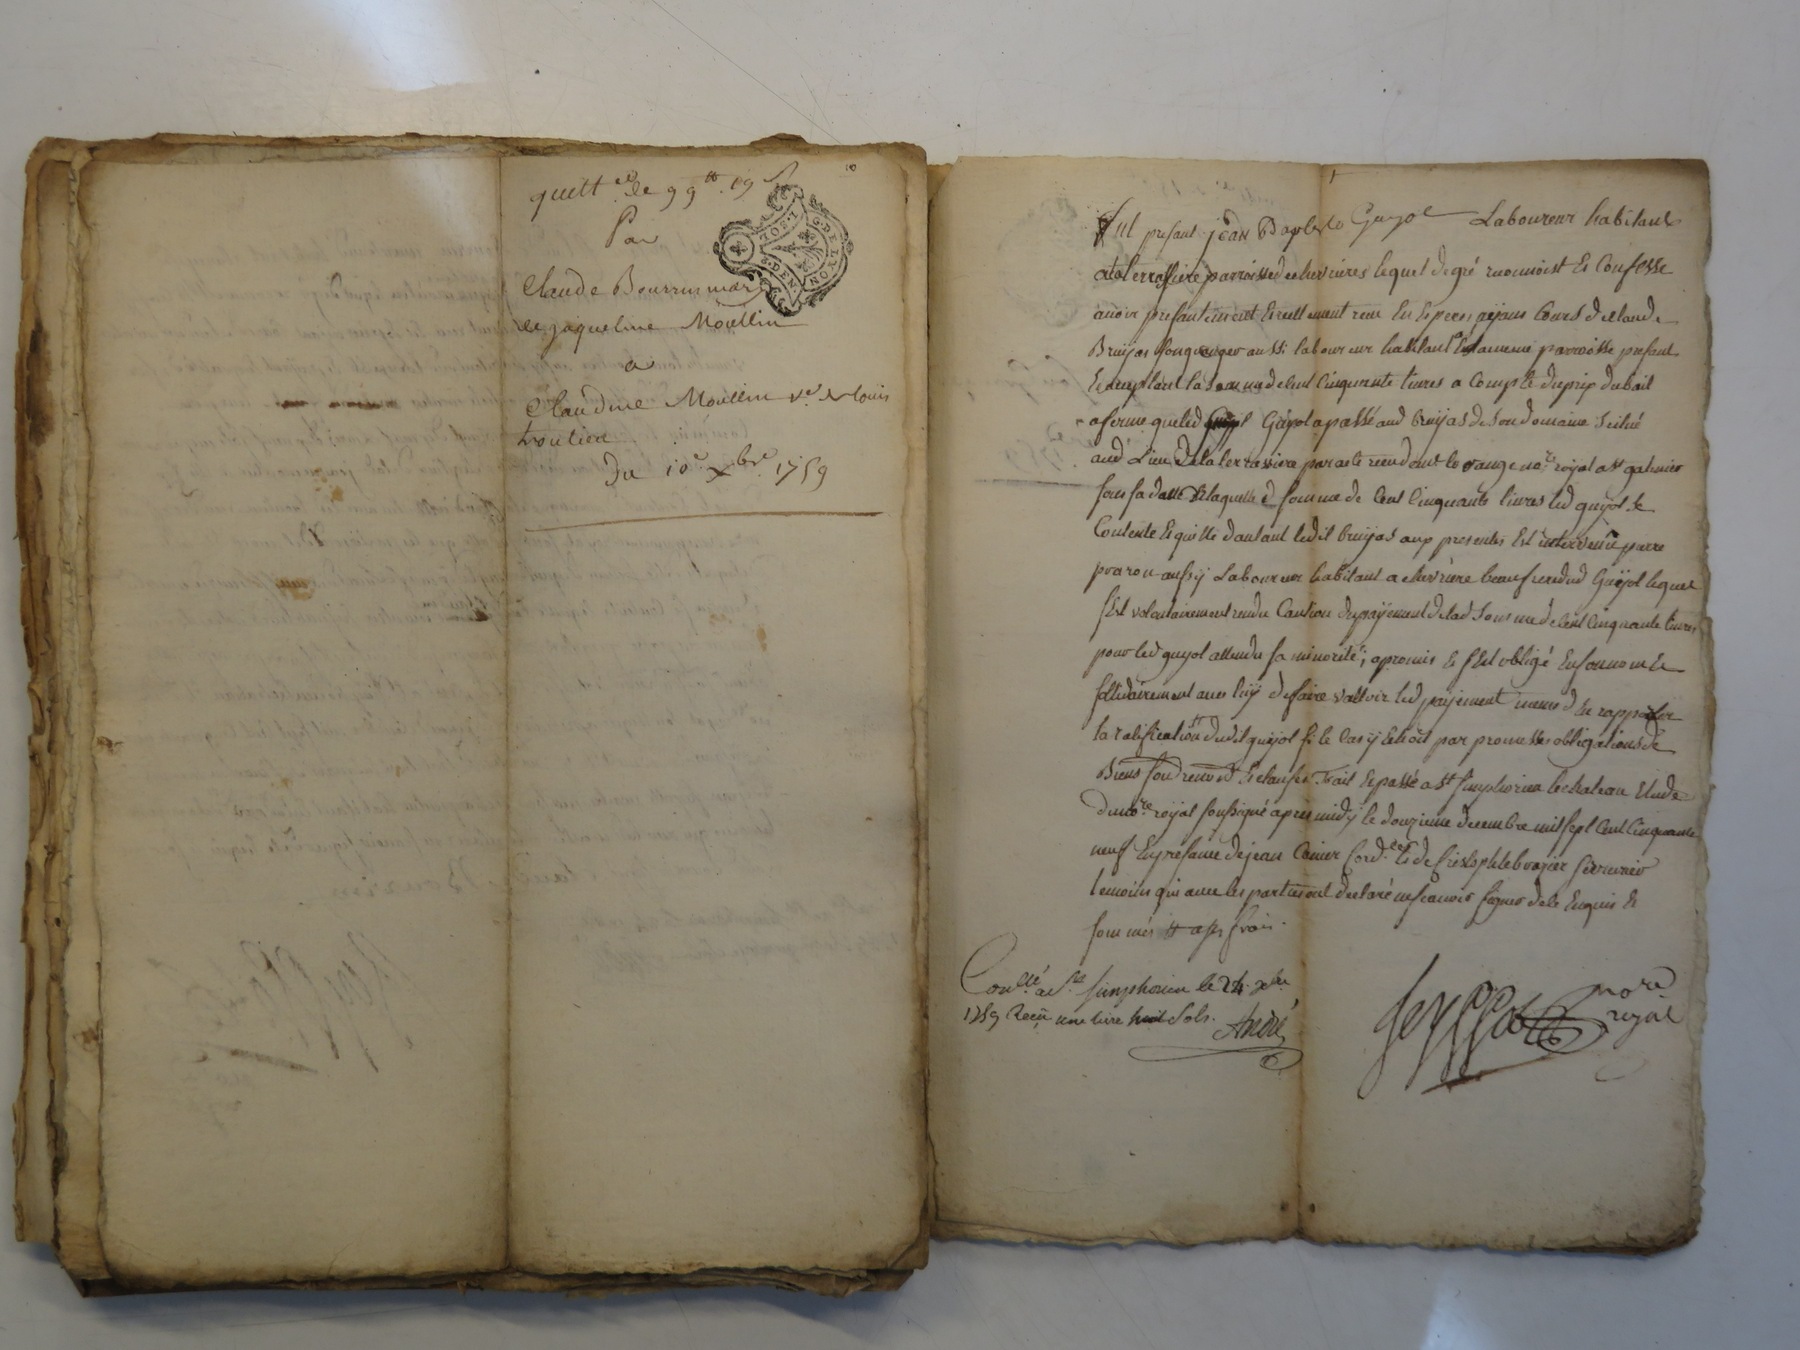 quitt ce de 99 tt 19 s
Par
Claude Bourrin mary
de jaqueline Moullin
a
Claudine Moullin ve de louis
troulieu
Du 10e Xbre 1759
I. SOL.
G. DE LYON
S. DEN.
Fut présant jean Baptiste Guyot Laboureur habitant
a la terrassiere parroisse de chevrieres lequel de gré reconnoist et Confesse
avoir présantement et réellement reçu En Espèces ayant Cours de Claude
Bruyas aussi laboureur habitant meme parroisse présant
Et acceptant la somme de Cent Cinquante livres a Compte du prix du bail
a ferme que led Guyot a passé aud bruyas de Son domaine Scitué
aud Lieu De la terrassiere par acte reçu dont le range nore royal a st galmier
sous sa datte De laquelle d somme de Cent Cinquante livres led guyot se
Contente Et quitte d'autant ledit bruyas aux presentes Est intervenu pierre
poaron aussy Laboureur habitant a chevriere beaufrere dud Guyot lequel
s'est volontairement rendu Caution du payement de lad Somme de Cent Cinquante livres
pour led guyot attendu sa minorité, a promis et s'est obligé En son nom Et
solidairement avec luy de faire valloir led payement meme d En rapporter
la ratification dudit guyot si le Cas y Echoit par promesses obligations de
Biens soud renond Et clauses Fait Et passé a st simphorien le chateau Etude
du nore royal soussigné apres midy le douzieme decembre mil sept Cent Cinquante
neuf En presance de jean Cord. Et de Cristophle serrurier
temoins qui avec les parties ont declaré ne scavoir signer de ce Enquis Et
sommés
Conllé a st simphorien le 24 xbre
1759 Reçu une livre huit Sols. André
nore
royal